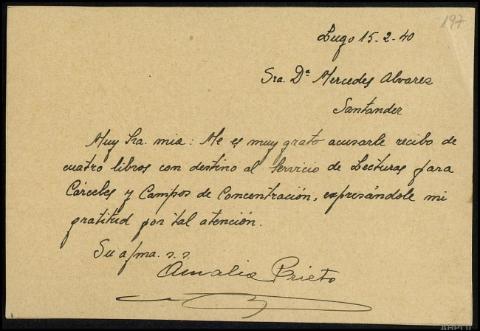 197
Lugo 15-2-40
Sra. Dª Mercedes Alvarez
Santander
Muy Sra. mia: Me es muy grato acusarle recibo de
cuatro libros con destino al Servicio de Lecturas para
Cárceles y Campos de Concentración, expresándole mi
gratitud por tal atención.
Su afma. s. s.
Amalia Prieto
AHPLU